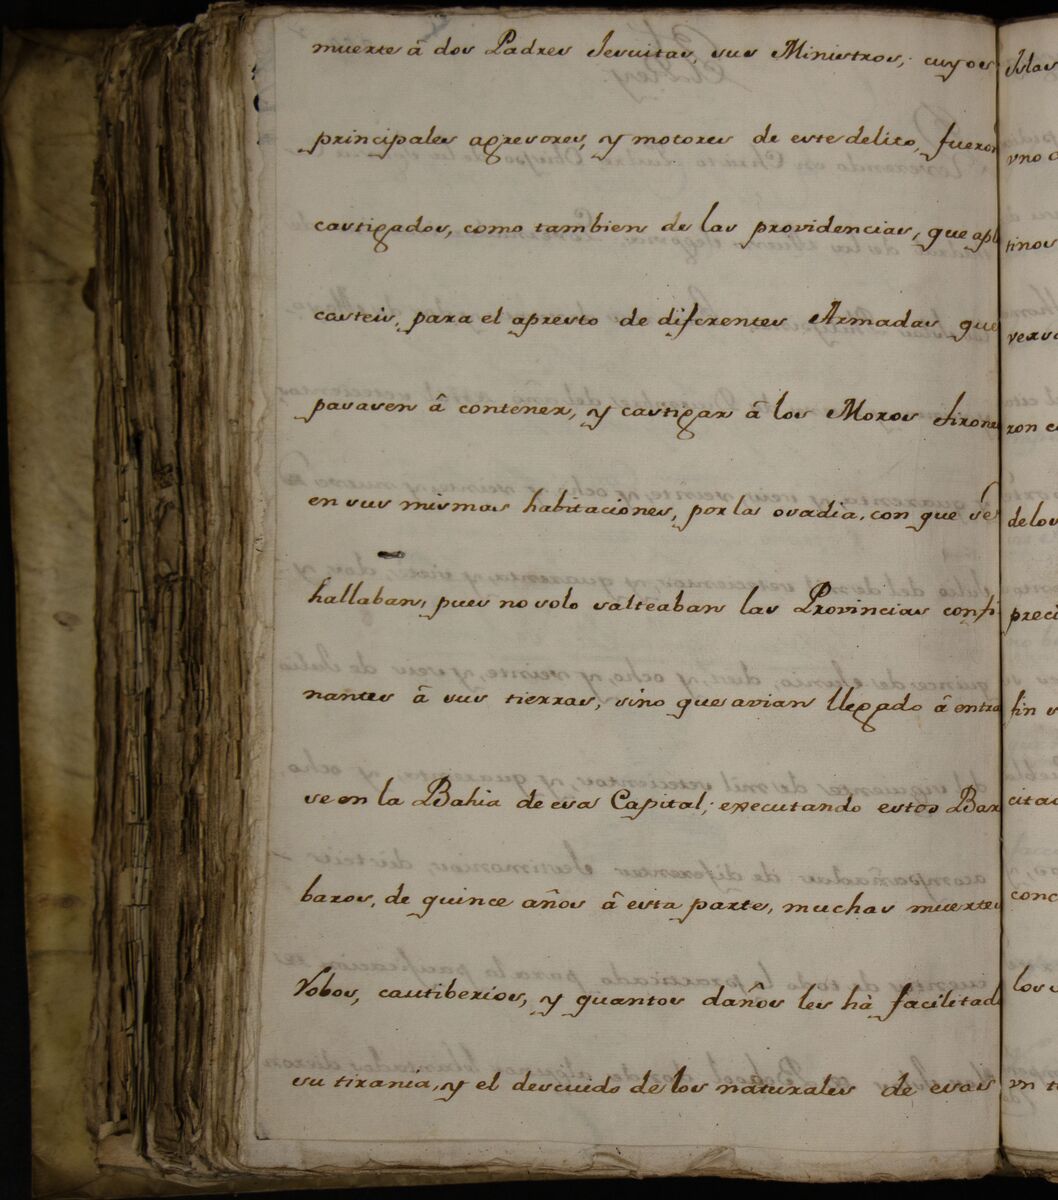 muerte â dos Padres Jesuitas, sus Ministros, cuyos
principales agresores, y motores de este delito, fueron
castigados, como tambien de las providencias, que apli
casteis, para el apresto de diferentes Armadas que
pasasen â contener, y castigar â los Moros Tirones
en sus mismas habitaciones, por la osadia, con que se
hallaban, pues no solo salteaban las Provincias confi
nantes â sus tierras, sino que avian llegado â entrar
se en la Bahia de esa Capital; executando estos Bar
baros, de quince años â esta parte, muchas muertes
Robos, cautiberios, y quantos daños les hà facilitado
su tirania, y el descuido de los naturales de esas
Islas
vno
tinos
ron
de los
preci
fin
cita
conc
los
vn